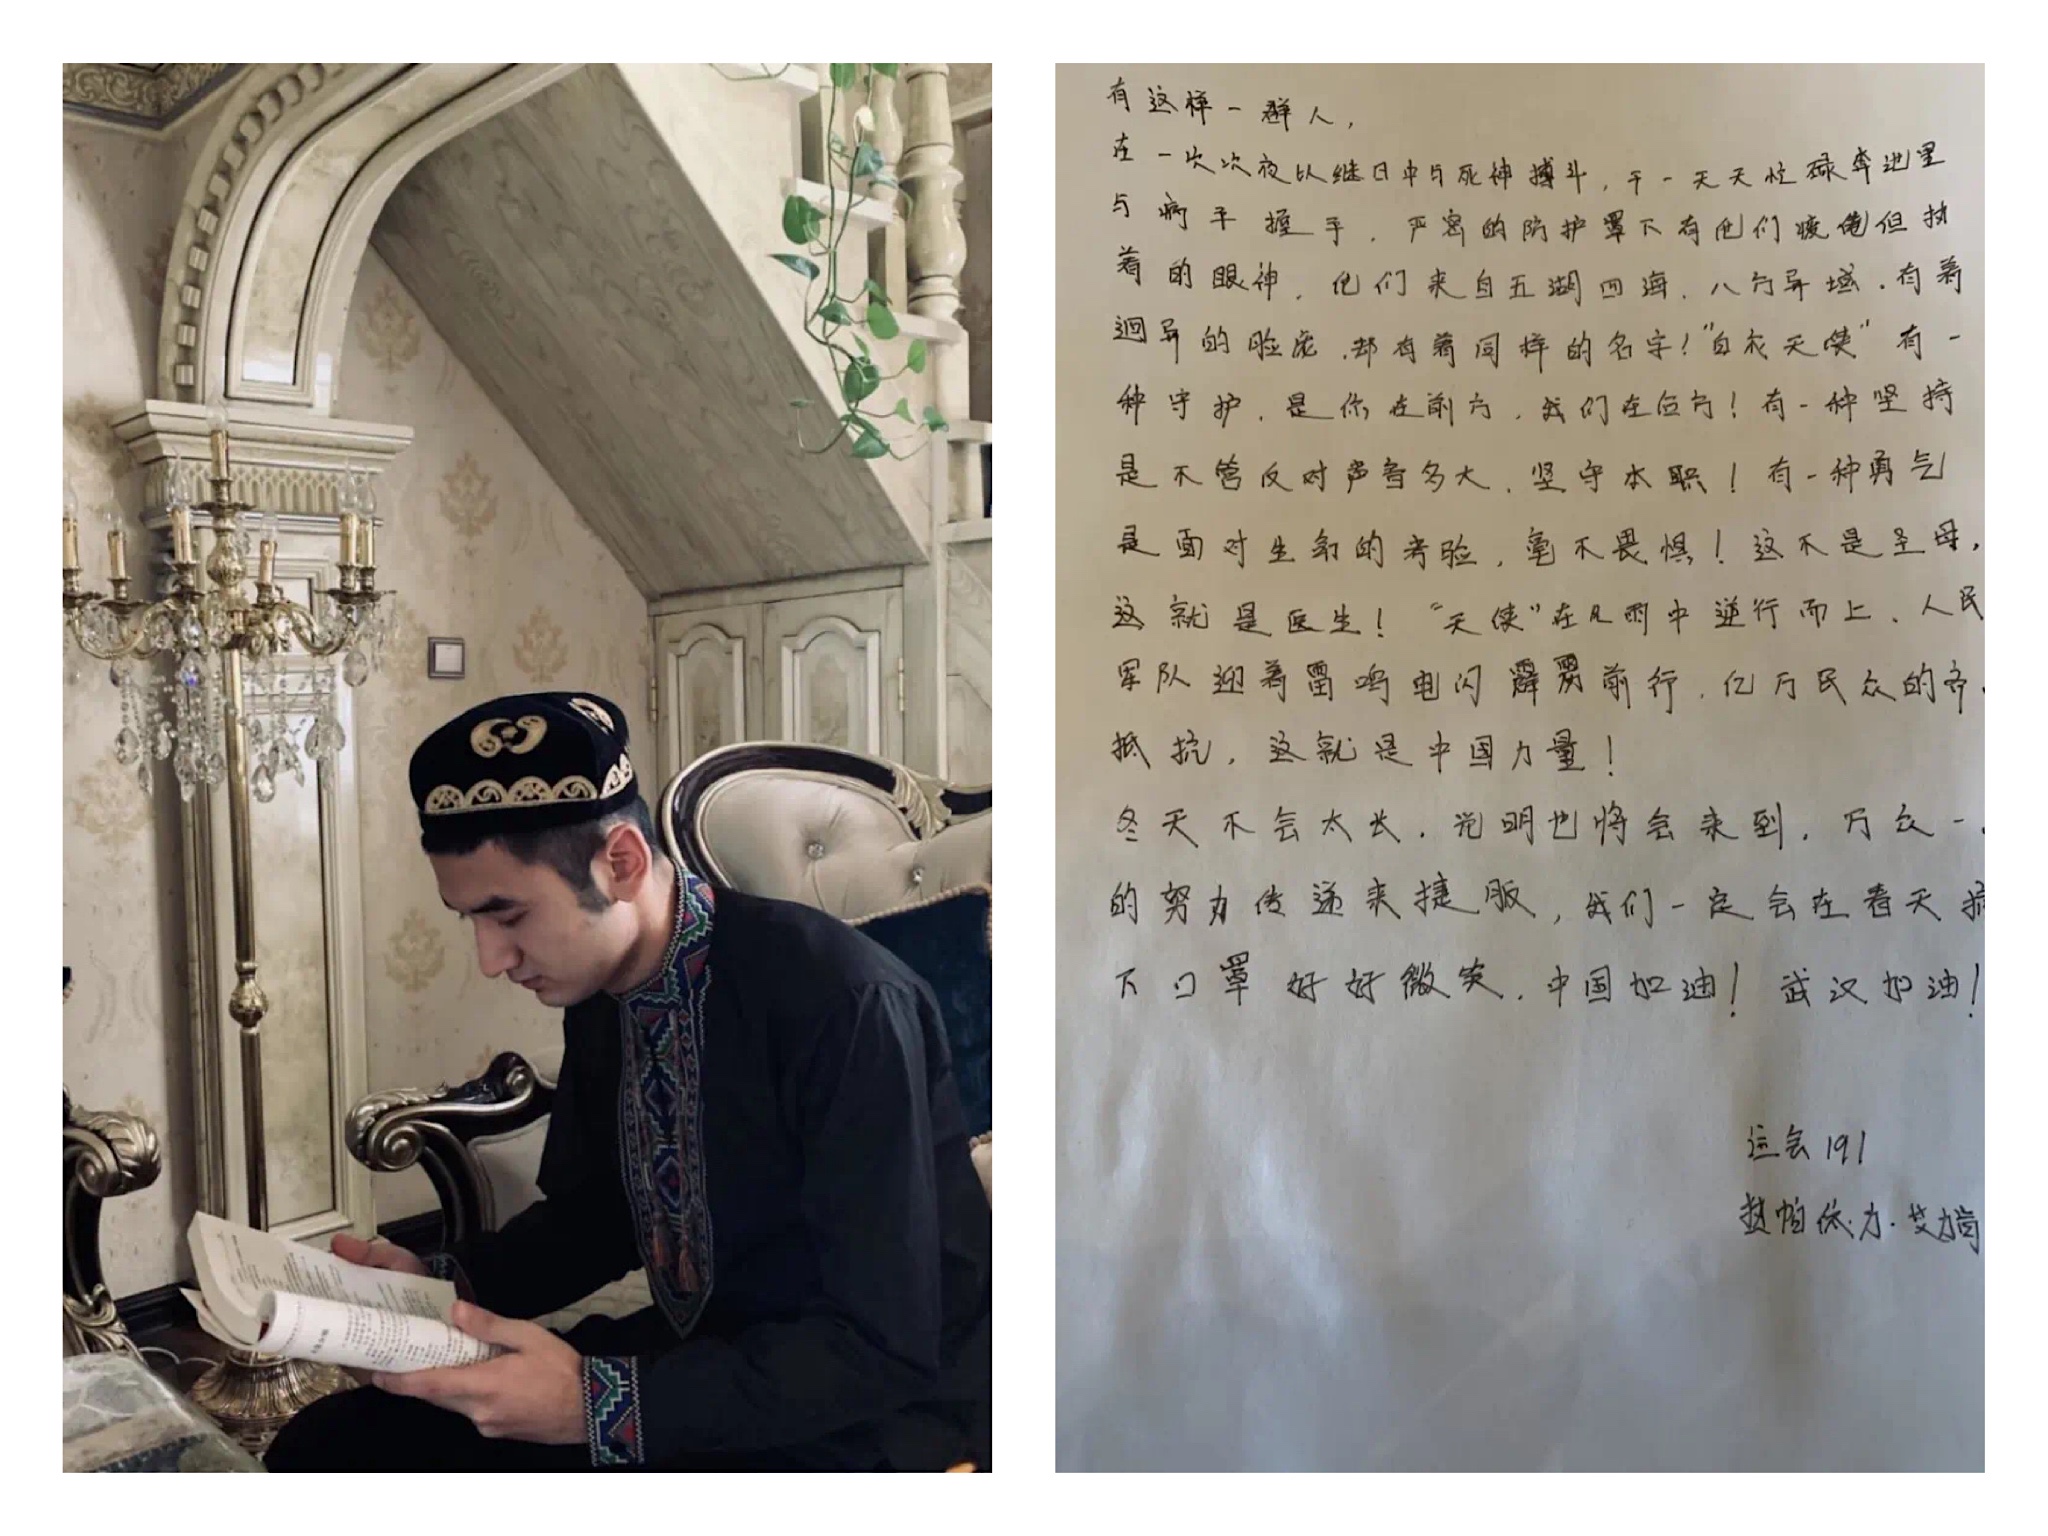 有这样一群人，
在一次次夜以继日中与死神搏斗，于一天天忙碌奔进里
与病手握手，严密的防护罩下有他们疲倦但执
着的眼神，他们来自五湖四海，八方异域，有着
迥异的脸庞，却有着同样的名字！“白衣天使”有一
种守护，是你在前方，我们在后方！有一种坚持
是不管反对声音多大，坚守本职！有一种勇气
是面对生命的考验，毫不畏惧！这不是圣母，
这就是医生！“天使”在风雨中逆行而上，人民
军队迎着雷鸣电闪霹雳前行，亿万民众的齐
抵抗，这就是中国力量！
冬天不会太长，光明也将会来到，万众一
的努力传递来捷报，我们一定会在春天摘
下口罩好好微笑，中国加油！武汉加油！
运会191
热帕依·力·艾力肯